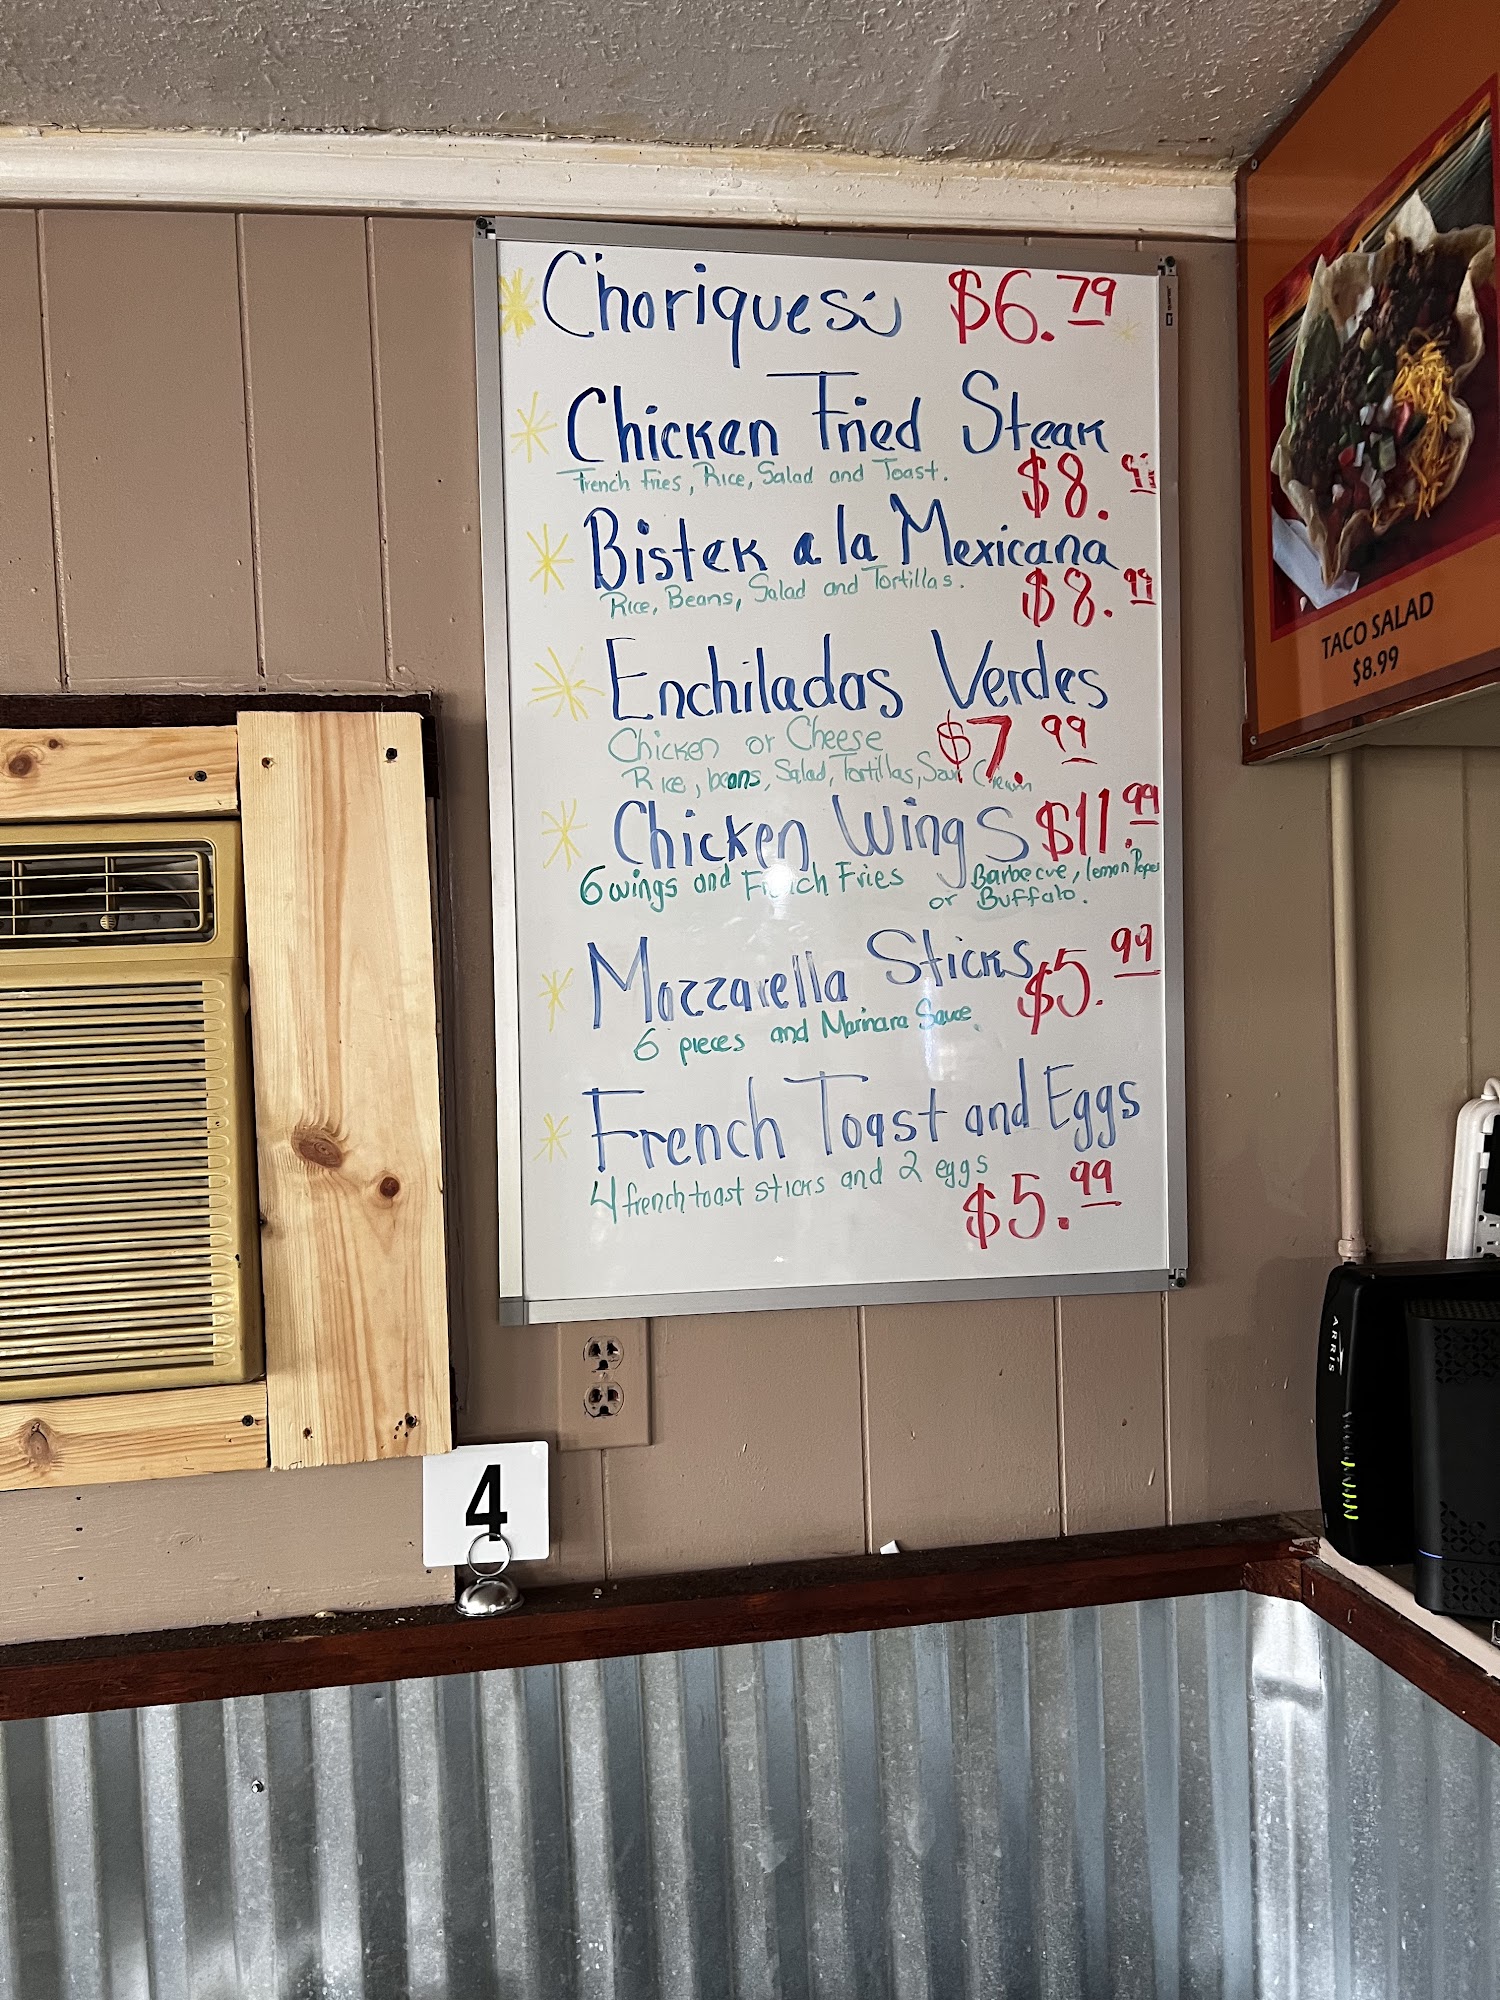 Choriqueso $6.79
Chicken Fried Steak
French Fries, Rice, Salad and Toast.
$8.99
Bistek a la Mexicana
Rice, Beans, Salad and Tortillas.
$8.99
Enchiladas Verdes
Chicken or Cheese $7.99
Rice, beans, Salad, Tortillas, Sour Cream
Chicken Wings $11.99
6 wings and French Fries Barbecue, lemon Peper
or Buffalo.
Mozzarella Sticks $5.99
6 pieces and Marinara Sauce.
French Toast and Eggs
4 french toast sticks and 2 eggs
$5.99
TACO SALAD
$8.99
ARRIS
4